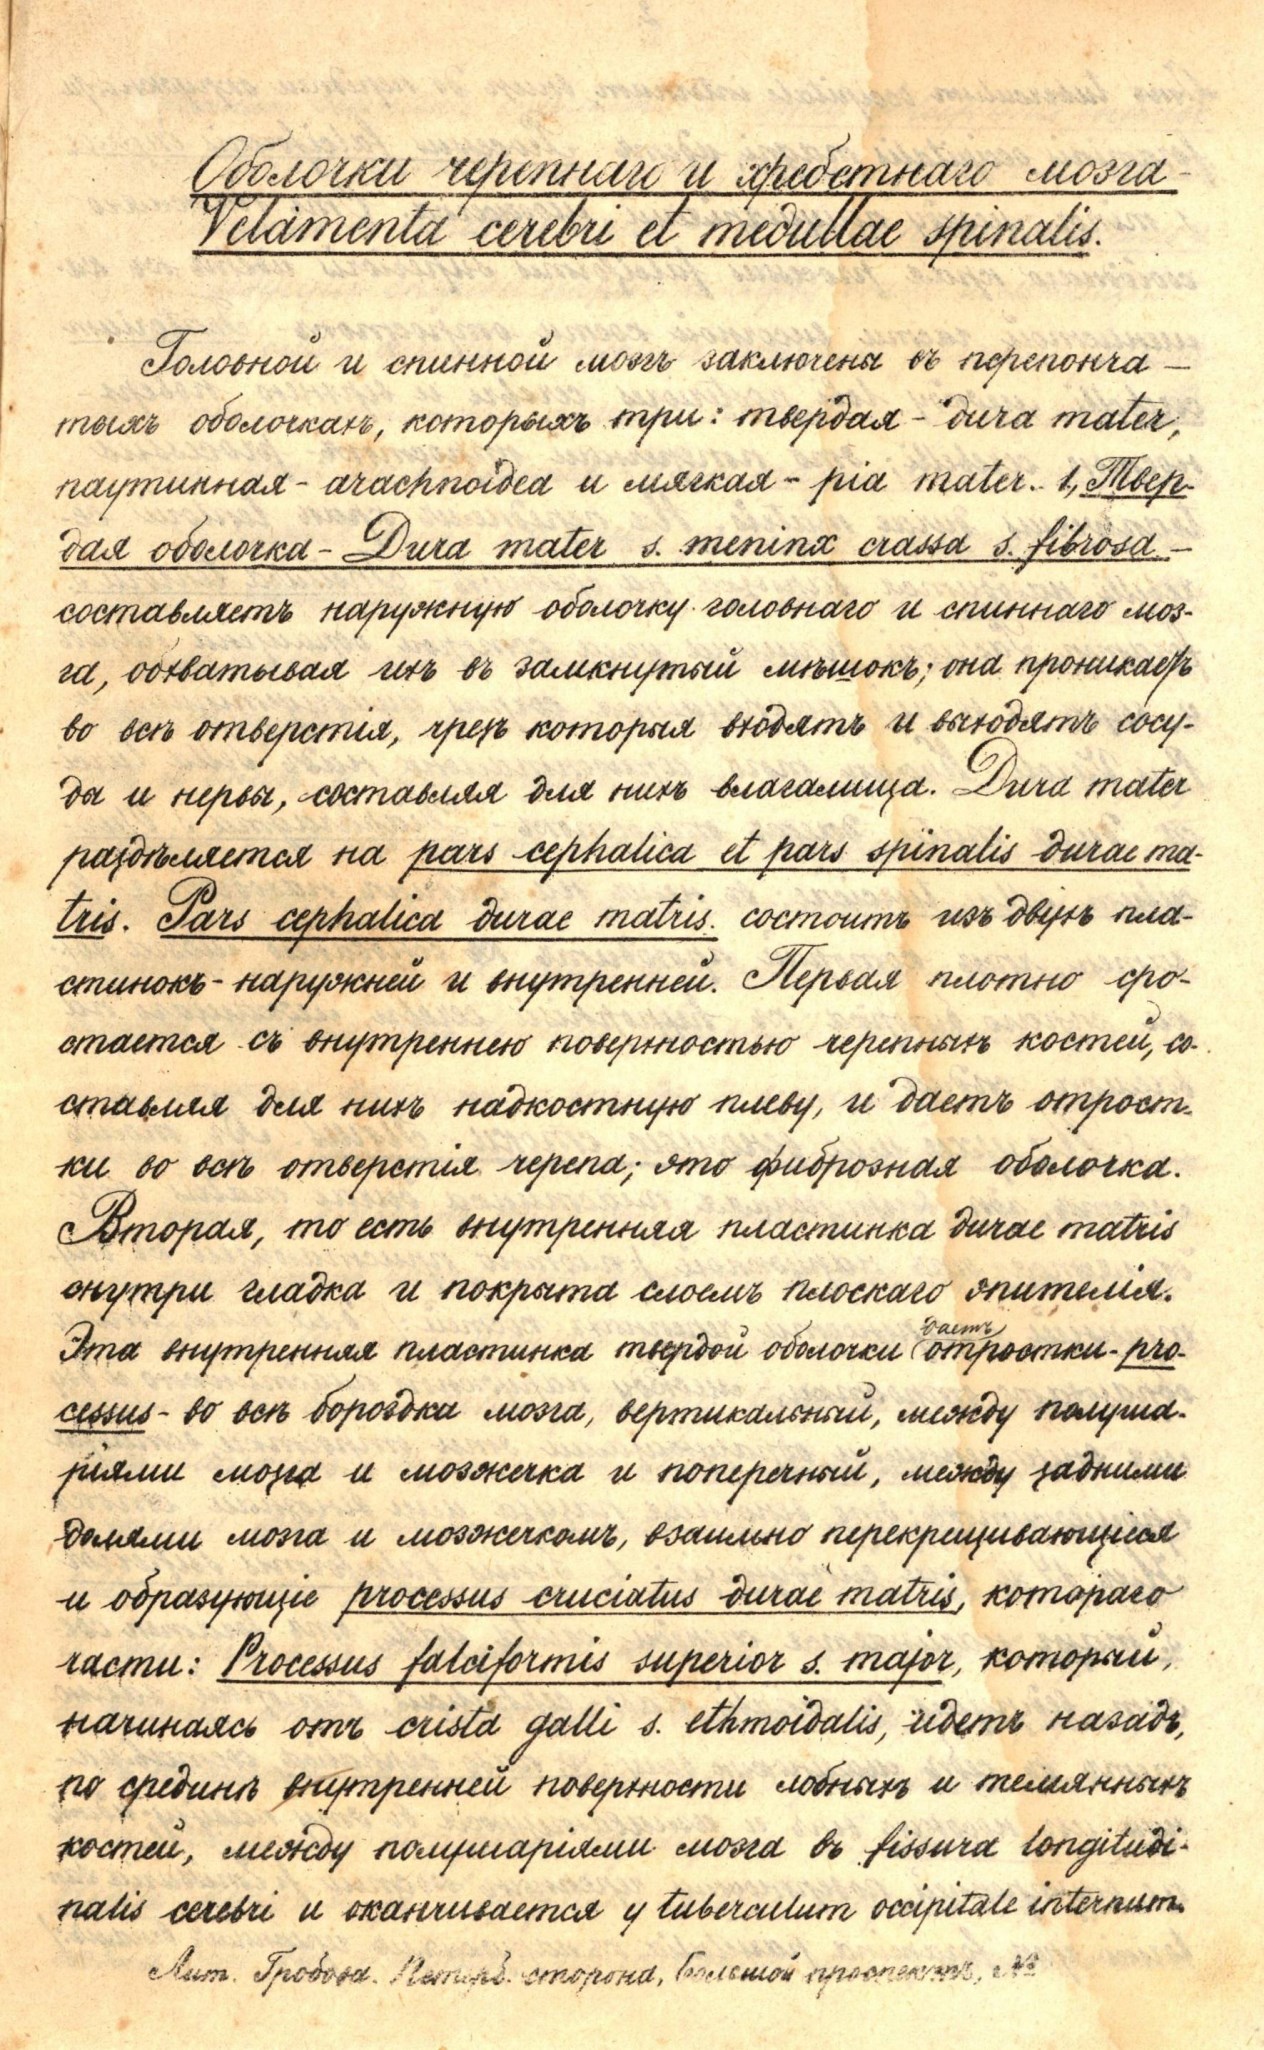 Оболочки черепнаго и хребетнаго мозга -
Velamenta cerebri et medullae spinalis.
Головной и спинной мозгъ заключены въ перепонча-
тыхъ оболочкахъ, которыхъ три: твердая - dura mater,
паутинная - arachnoidea и мягкая - pia mater. 1, Твер-
дая оболочка - Dura mater s. meninx crassa s. fibrosa -
составляетъ наружную оболочку головнаго и спиннаго моз-
га, обхватывая ихъ въ замкнутый мѣшокъ; она проникаетъ
во всѣ отверстія, чрезъ которыя входятъ и выходятъ сосу-
ды и нервы, составляя для нихъ влагалища. Dura mater
раздѣляется на pars cephalica et pars spinalis durae ma-
tris. Pars cephalica durae matris. состоитъ изъ двухъ пла-
стинокъ - наружней и внутренней. Первая плотно сро-
стается съ внутреннею поверхностью черепныхъ костей, со-
ставляя для нихъ надкостную плеву, и даетъ отрост-
ки во всѣ отверстія черепа; это фиброзная оболочка.
Вторая, то есть внутренняя пластинка durae matris
внутри гладка и покрыта слоемъ плоскаго эпителія.
Эта внутренняя пластинка твердой оболочки даетъ отростки - pro-
cessus - во всѣ бороздки мозга, вертикальный, между полуша-
ріями мозга и мозжечка и поперечный, между задними
долями мозга и мозжечкомъ, взаимно перекрещивающіеся
и образующіе processus cruciatus durae matris, котораго
части: Processus falciformis superior s. major, который,
начинаясь отъ crista galli s. ethmoidalis, идетъ назадъ,
по срединѣ внутренней поверхности лобныхъ и темянныхъ
костей, между полушаріями мозга въ fissura longitudi-
nalis cerebri и оканчивается у tuberculum occipitale internum.
Лит. Гробова. Петерб. сторона, Большой проспектъ, №